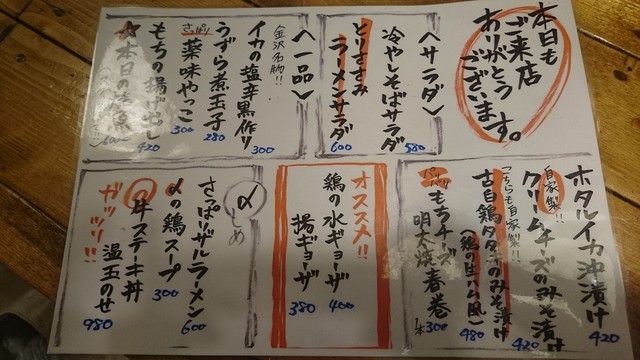 本日も
ご来店
ありがとう
ございます。
〈サラダ〉
冷やしそばサラダ
580
とりささみ
ラーメンサラダ
600
〈一品〉
金沢名物!!
イカの塩辛黒作り
300
うずら煮玉子
280
さっぱり
薬味やっこ
300
もちの揚げ出し
420
本日の
ホタルイカ沖漬け
420
自家製!!
クリームチーズのみそ漬け
420
こちらも自家製!!
古白鶏タタキのみそ漬け
(鶏の生ハム風)
480
パリパリ
もちチーズ
明太焼春巻
1本300
オススメ!!
鶏の水ギョーザ
400
揚ギョーザ
380
〆
しめ
さっぱりザルラーメン
600
〆の鶏スープ
300
牛ステーキ丼
温玉のせ
980
ガッツリ!!